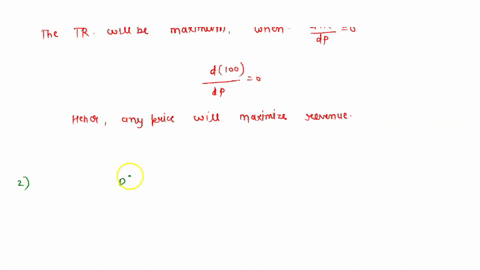 The TR. will be maximum, when dp =0
d(100)
dp =0
Hence, any price will maximize revenue.
2) D